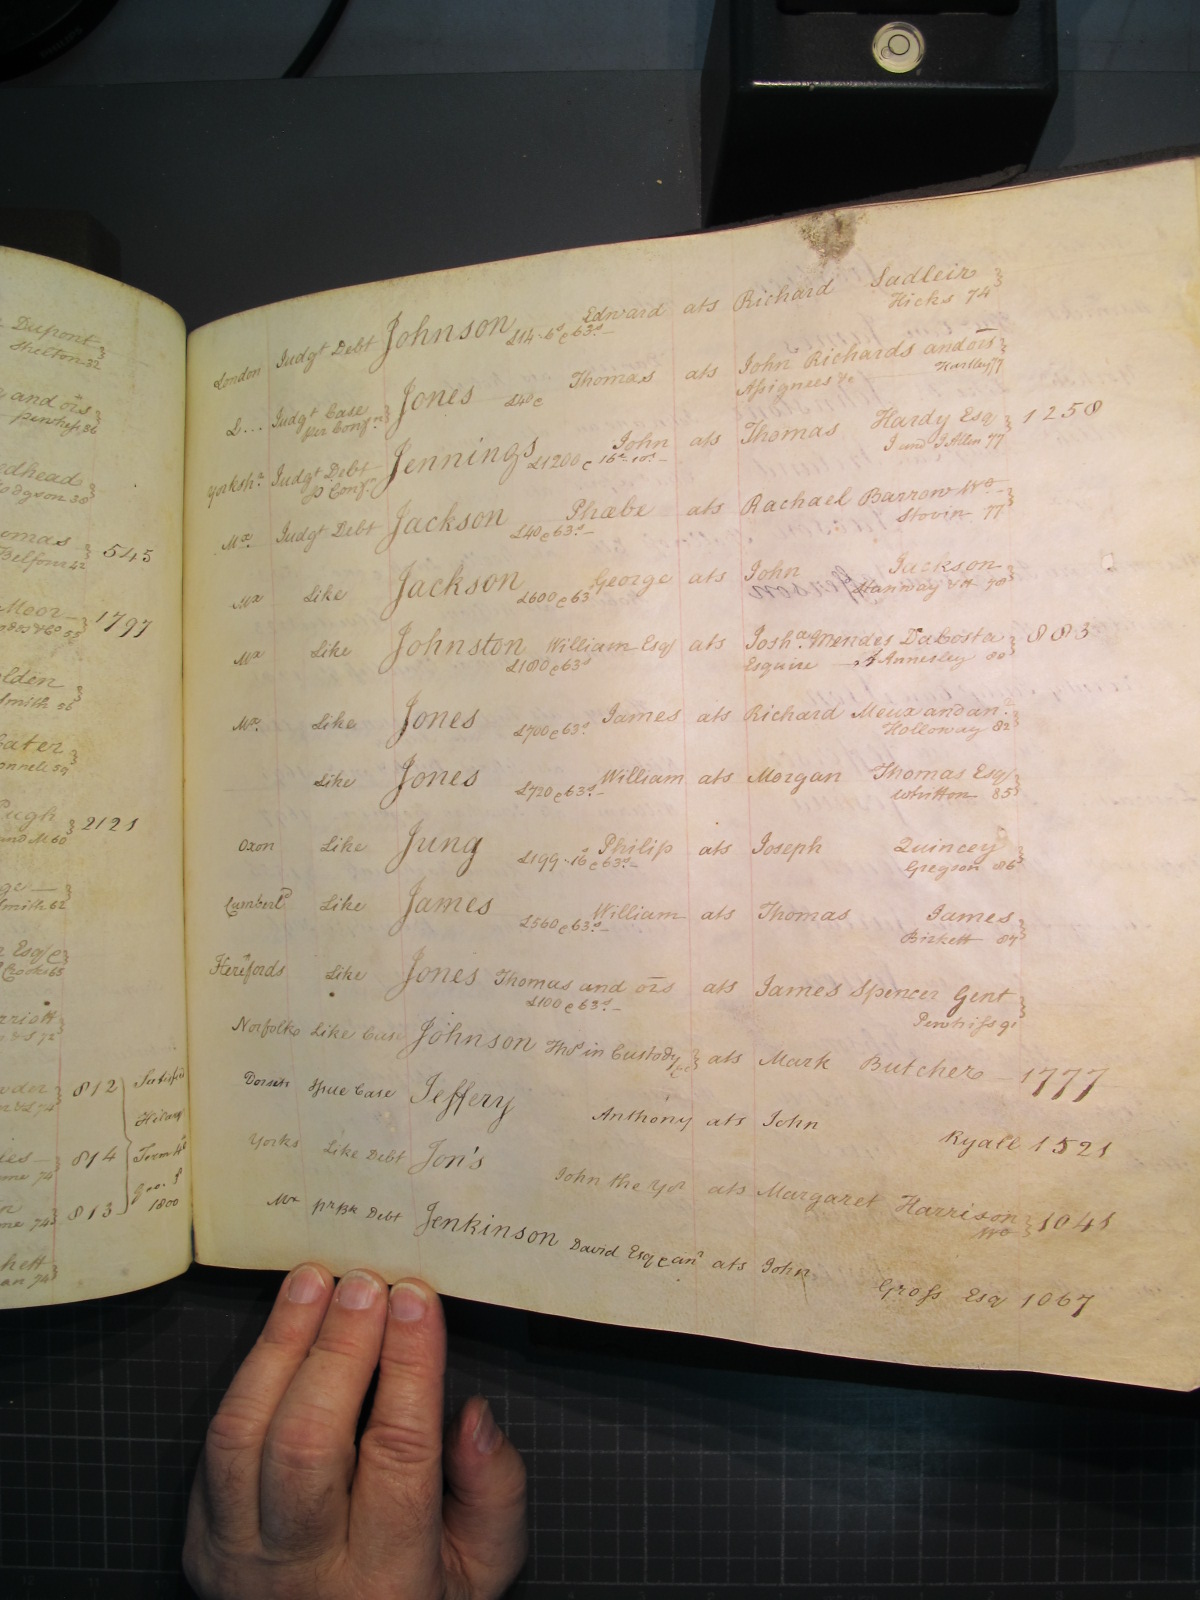 Dupont
Shelton 32
and ors
Penhefs 36
edhead
odgson 38
omas 545
Belfour 42
Moor 1797
55
olden
Smith 56
Cater
onnell 59
Pugh 2121
and M 60
ge
Smith 62
Esq
Crooke 65
rriott
& S 72
wder 812 Satisfied
& L 74 Hilary
ies 814 Term 40
me 74 Geo. 3
n 813 1800
me 74
hett
an 74
London Judgt Debt Johnson £14-6s e 63s Edward ats Richard Sadleir
Hicks 74
L... Judgt Case Jones £40 e Thomas ats John Richards and ors
per Confn Assignees &c Hartley 77
Yorkshe Judgt Debt Jennings £1200 e 16s-10s John ats Thomas Hardy Esq 1258
p Confn J and J Allen 77
Mx Judgt Debt Jackson £40 e 63s Phœbe ats Rachael Barrow Wo
Stovin 77
Mx Like Jackson £600 e 63 George ats John Jackson
Stanway
Mx Like Johnston William Esq ats Josha Mendes Dacosta 883
£100 e 63s Esquire Annesley 80
Mx Like Jones £700 e 63s James ats Richard Meux and anr
Holloway 82
Like Jones £720 e 63s William ats Morgan Thomas Esq
Whitton 85
Oxon Like Jung £199-16s e 63s Philip ats Joseph Quincey
Gregson 86
Cumberld Like James £560 e 63s William ats Thomas James
Birkett 87
Herefords Like Jones Thomas and ors ats James Spencer Gent
£100 e 63s 91
Norfolk Like Case Johnson Thos in Custody &c ats Mark Butcher 1777
Dorset Spue Case Jeffery Anthony ats John Ryall 1521
Yorks Like Debt Jon's John the Yor ats Margaret Harrison 1041
Wo
Mx prBk Debt Jenkinson David Esq e anr ats John Gross Esq 1067